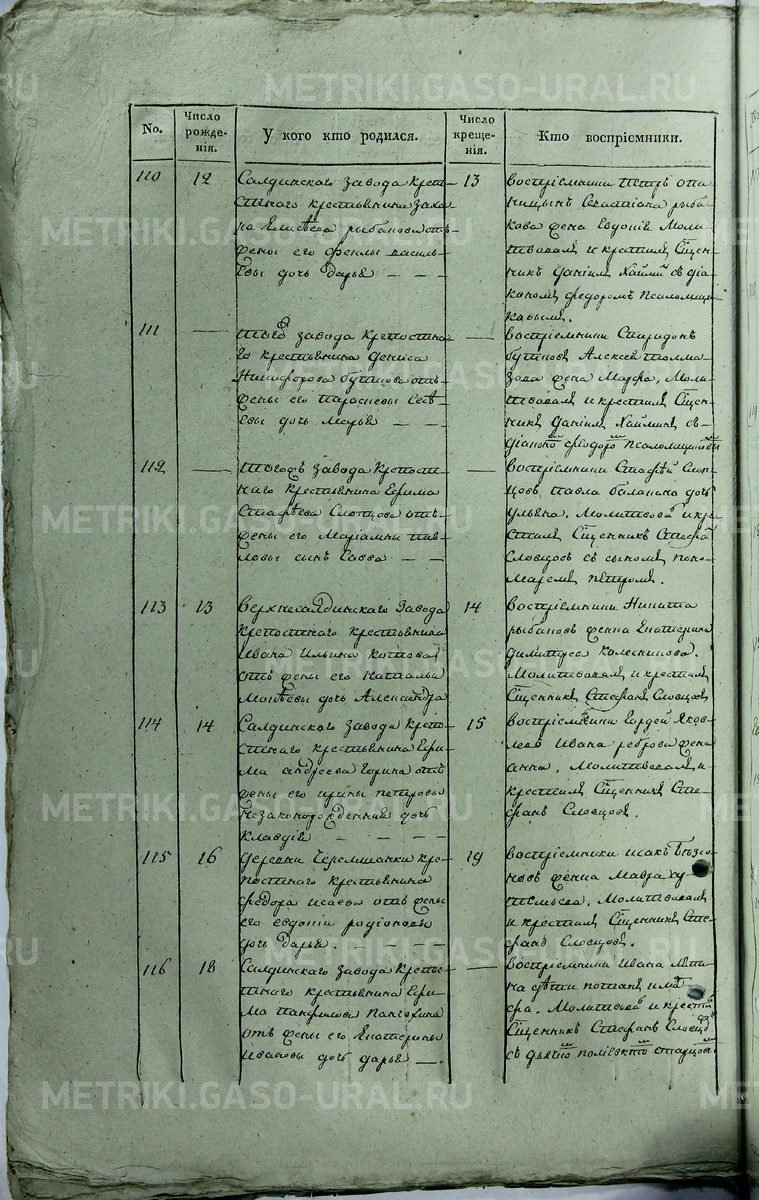 METRIKI.GASO-URAL.RU
No.
Число рожде-нія.
У кого кто родился.
Число креще-нія.
Кто воспріемники.
110
12
Салдинскаго завода крепо-
стнаго крестьянина Заха-
ра Елисѣева рыбакова отъ
жены его феклы василь-
евы дочь дарья — — —
13
воспріемники Петръ
Севастіана рыба-
кова жена Евдокія Моли-
твовалъ и крестилъ Сщен-
никъ Даніилъ съ діа-
кономъ федоромъ Псаломщи-
ковымъ.
111
—
того завода крепостна-
го крестьянина дениса
Никифорова бутакова отъ
жены его Парасковьи
евы дочь Марья — —
—
воспріемники Спиридонъ
бутаковъ Алексея
зова жена Марфа, Моли-
твовалъ и крестилъ Сщен-
никъ Даніилъ съ
діакономъ федоромъ Псаломщиковы
112
—
тогожъ завода крепост-
наго крестьянина Ефима
Стафѣева Слопцова отъ
жены его Маріамны пав-
ловы сынъ Савва — —
—
воспріемники Стафѣй Слоп-
цовъ павла балакина дочь
ульяна. Молитвовалъ и кре-
стилъ Сщенникъ Стефанъ
Словцовъ съ сыномъ поно-
маремъ петромъ.
113
13
верхнесалдинскаго завода
крепостнаго крестьянина
Ивана Ильина котова
отъ жены его Натальи
Мокѣевы дочь Александра
14
воспріемники Никита
рыбаковъ жена Екатерина
димитрева колесникова.
Молитвовалъ и крестилъ
Сщенникъ Стефанъ Словцовъ
114
14
Салдинскаго завода крепо-
стнаго крестьянина Ефи-
ма андреева Горина отъ
жены его ирины петровы
незаконорожденная дочь
клавдія — — — —
15
воспріемники Гордей Яков-
левъ Ивана реброва жена
анна. Молитвовалъ и
крестилъ Сщенникъ Сте-
фанъ Словцовъ.
115
16
деревни Черемшанки кре-
постнаго крестьянина
федора исаева отъ жены
его евдокіи родіоновы
дочь дарья — — —
19
воспріемники исакъ
новъ женка Мавра
Молитвовалъ
и крестилъ Сщенникъ Сте-
фанъ Словцовъ.
116
18
Салдинскаго завода крепос-
тнаго крестьянина Ефи-
ма панфилова
отъ жены его Екатерины
Ивановы дочь дарья —.
—
воспріемники Ивана
на дѣти потапъ и ма-
фра. Молитвовалъ и крестилъ
Сщенникъ Стефанъ Словцовъ
съ дьячкомъ поліектомъ старцовымъ